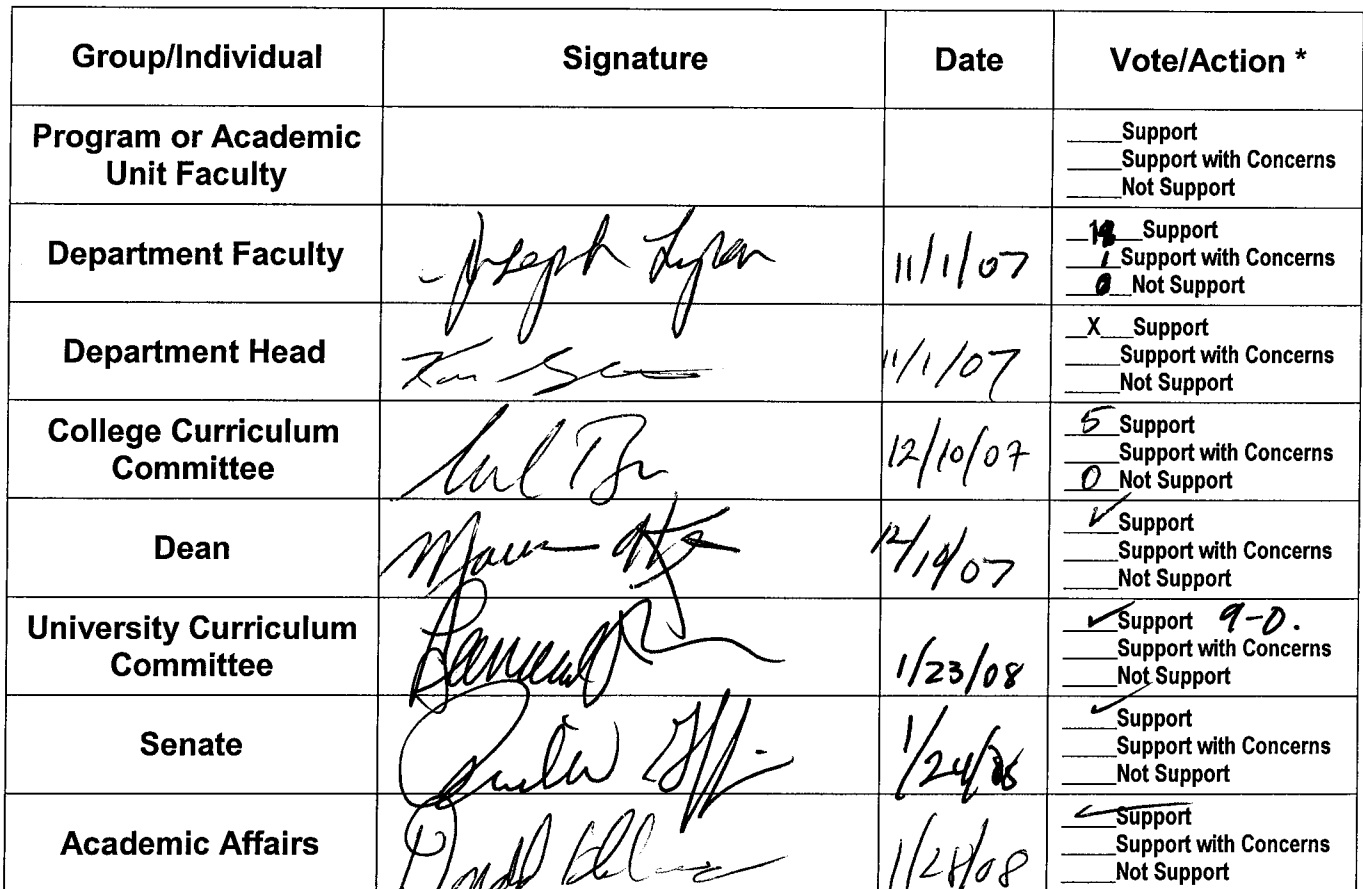 Group/Individual Signature Date Vote/Action *
Program or Academic
Unit Faculty
____Support
____Support with Concerns
____Not Support
Department Faculty Joseph 11/1/07
____Support
__1__Support with Concerns
__0__Not Support
Department Head 11/1/07
__X__Support
____Support with Concerns
____Not Support
College Curriculum
Committee
12/10/07
__5__Support
____Support with Concerns
__0__Not Support
Dean 12/19/07
__✓__Support
____Support with Concerns
____Not Support
University Curriculum
Committee
1/23/08
__✓__Support 9-0.
____Support with Concerns
____Not Support
Senate 1/24/
__✓__Support
____Support with Concerns
____Not Support
Academic Affairs 1/28/08
__✓__Support
____Support with Concerns
____Not Support